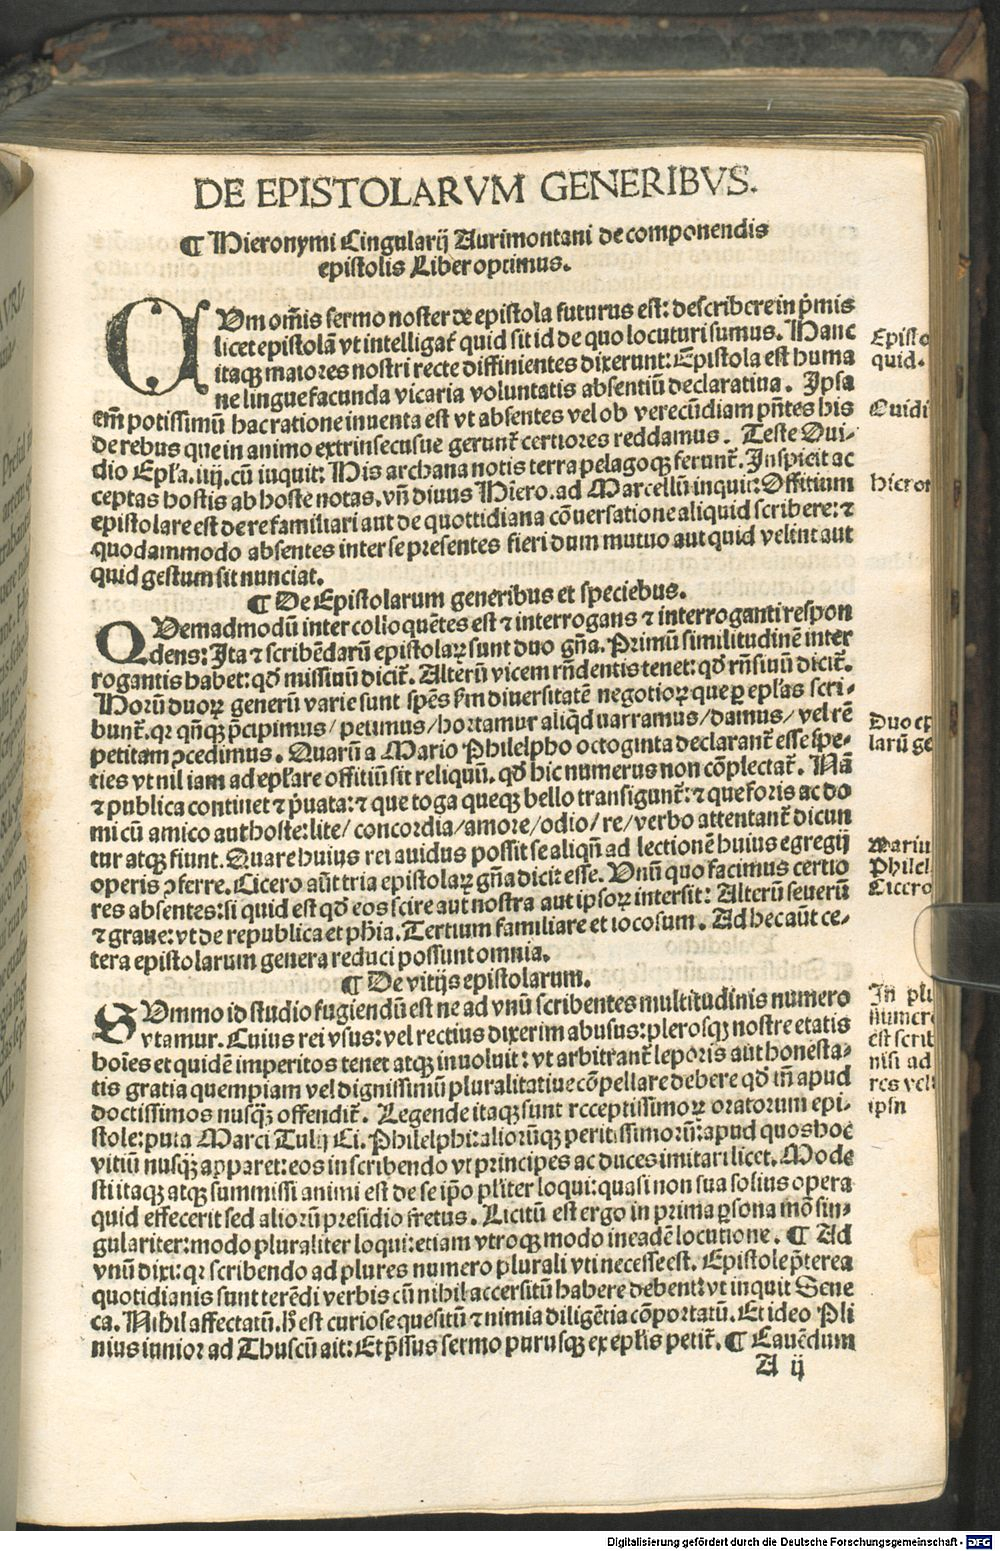 DE EPISTOLARVM GENERIBVS.
¶ Hieronymi Cingularij Aurimontani de componendis
epistolis Liber optimus.
CVm om̃is sermo noster de epistola futurus est: describere in p̃mis
licet epistolã vt intelligat᷑ quid sit id de quo locuturi sumus. Hanc
itaqꝫ maiores nostri recte diffinientes dixerunt: Epistola est huma
ne lingue facunda vicaria voluntatis absentiũ declaratiua. Ipsa
em̃ potissimũ hac ratione inuenta est vt absentes vel ob verecũdiam pñtes his
de rebus que in animo extrinsecusue gerunt᷑ certiores reddamus. Teste Oui-
dio Epl'a.iiij.cũ iuquit: His archana notis terra pelagoqꝫ ferunt᷑. Inspicit ac
ceptas hostis ab hoste notas. vñ diuus Hiero. ad Marcellũ inquit: Offitium
epistolare est de re familiari aut de quottidiana cõuersatione aliquid scribere: ⁊
quodammodo absentes inter se presentes fieri dum mutuo aut quid velint aut
quid gestum sit nunciat.
¶ De Epistolarum generibus et speciebus.
QVemadmodũ inter colloquẽtes est ⁊ interrogans ⁊ interroganti respon
dens: Ita ⁊ scribẽdarũ epistolaꝝ sunt duo gña. Primũ similitudinẽ inter
rogantis habet: qđ missiuũ dicit᷑. Alterũ vicem rñdentis tenet: qđ rñsiuũ dicit᷑.
Horũ duoꝝ generũ varie sunt spẽs ẜm diuersitatẽ negotioꝝ que ꝑ epl'as scri-
bunt᷑. qꝛ qñqꝫ p̃cipimus/ petimus/ hortamur aliqđ uarramus/ damus/ vel rẽ
petitam ↄcedimus. Quarũ a Mario Philelpho octoginta declarant᷑ esse spe-
ties vt nil iam ad epl'are offitiũ sit reliquũ. qđ hic numerus non cõplectat᷑. Nã
⁊ publica continet ⁊ p̃uata: ⁊ que toga queqꝫ bello transigunt᷑: ⁊ que foris ac do
mi cũ amico aut hoste: lite/ concordia/ amore/ odio/ re/ verbo attentant᷑ dicun
tur atqꝫ fiunt. Quare huius rei auidus possit se aliqñ ad lectionẽ huius egregij
operis ↄferre. Cicero aũt tria epistolaꝝ gña dicit esse. Vnũ quo facimus certio
res absentes: si quid est qđ eos scire aut nostra aut ipsoꝝ intersit: Alterũ seuerũ
⁊ graue: vt de republica et ph̃ia. Tertium familiare et iocosum. Ad hec aũt ce-
tera epistolarum genera reduci possunt omnia.
¶ De vitijs epistolarum.
SVmmo id studio fugiendũ est ne ad vnũ scribentes multitudinis numero
vtamur. Cuius rei vsus: vel rectius dixerim abusus: plerosqꝫ nostre etatis
hoĩes et quidẽ imperitos tenet atqꝫ inuoluit: vt arbitrant᷑ leporis aut honesta-
tis gratia quempiam vel dignissimũ pluralitatiue cõpellare debere qđ tñ apud
doctissimos nusqꝫ offendit᷑. Legende itaqꝫ sunt receptissimoꝝ oratorum epi-
stole: puta Marci Tulij Ci. Philelphi: aliorũqꝫ peritissimorũ: apud quos hoc
vitiũ nusqꝫ apparet: eos in scribendo vt principes ac duces imitari licet. Mode
sti itaqꝫ atqꝫ summissi animi est de se ip̃o pl'iter loqui: quasi non sua solius opera
quid effecerit sed aliorũ presidio fretus. Licitũ est ergo in prima ꝑsona mõ sin-
gulariter: modo pluraliter loqui: etiam vtroqꝫ modo in eadẽ locutione. ¶ Ad
vnũ dixi: qꝛ scribendo ad plures numero plurali vti necesse est. Epistole p̃terea
quotidianis sunt terẽdi verbis cũ nihil accersitũ habere debent: vt inquit Sene
ca. Nihil affectatũ. ħ est curiose quesitũ ⁊ nimia diligẽtia cõportatũ. Et ideo Pli
nius iunior ad Thuscũ ait: Et p̃ssus sermo purusqꝫ ex epl'is petit᷑. ¶ Cauẽdum
A ij
Episto
quid.
Ouidi
hieron
Duo ep
larũ ge
Mariu
Philel
Cicero
In plu
numero
est scrib
nisi ad
res vel
ipsn
Digitalisierung gefördert durch die Deutsche Forschungsgemeinschaft - DFG